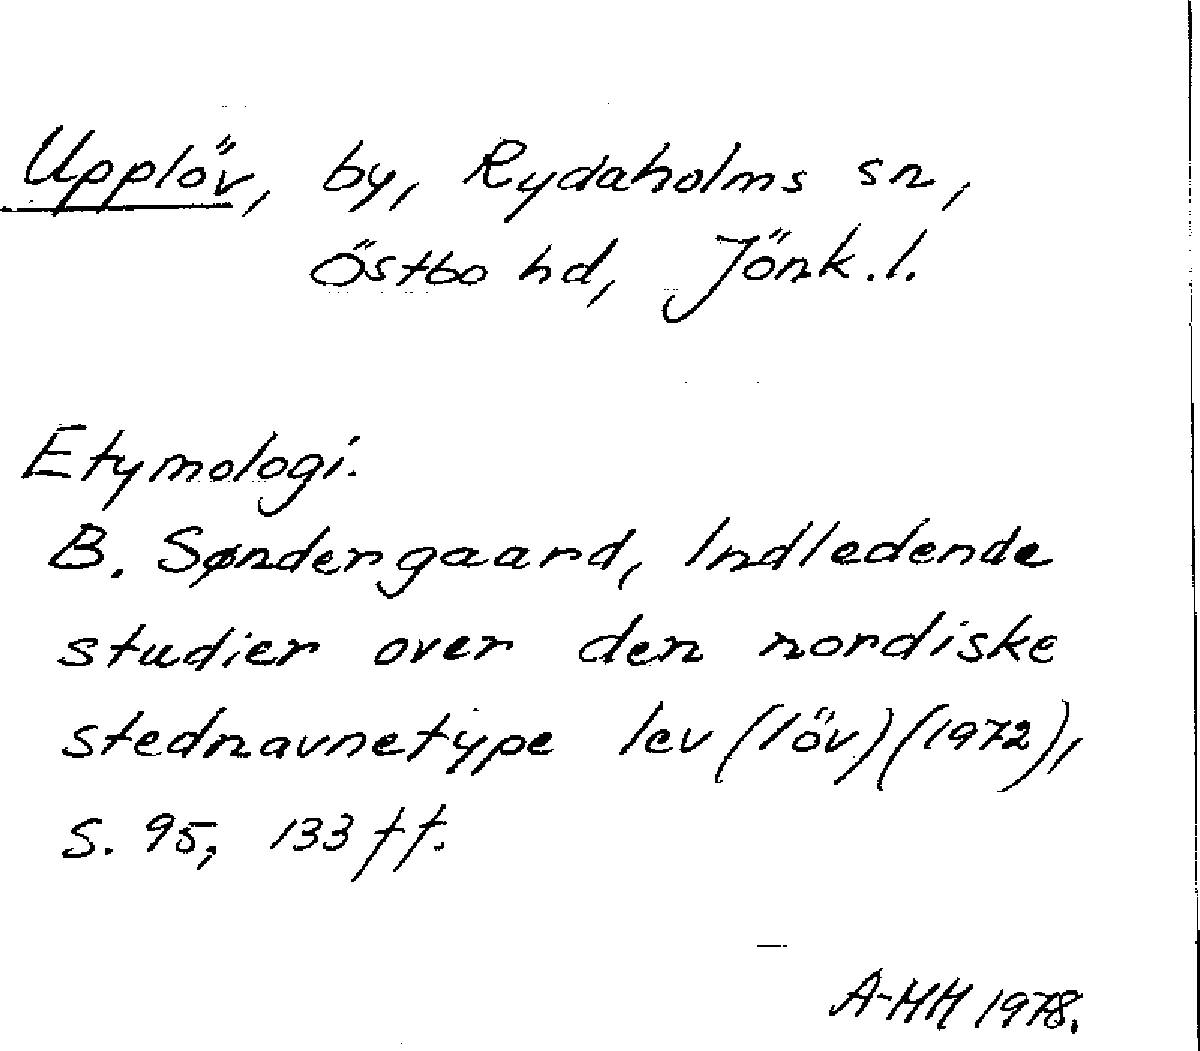 Upplöv, by, Rydaholms sn,
Östbo hd, Jönk.l.
Etymologi.
B. Søndergaard, Indledende
studier over den nordiske
stednavnetype lev (löv) (1972),
s. 95, 133 ff.
A-MM 1978.